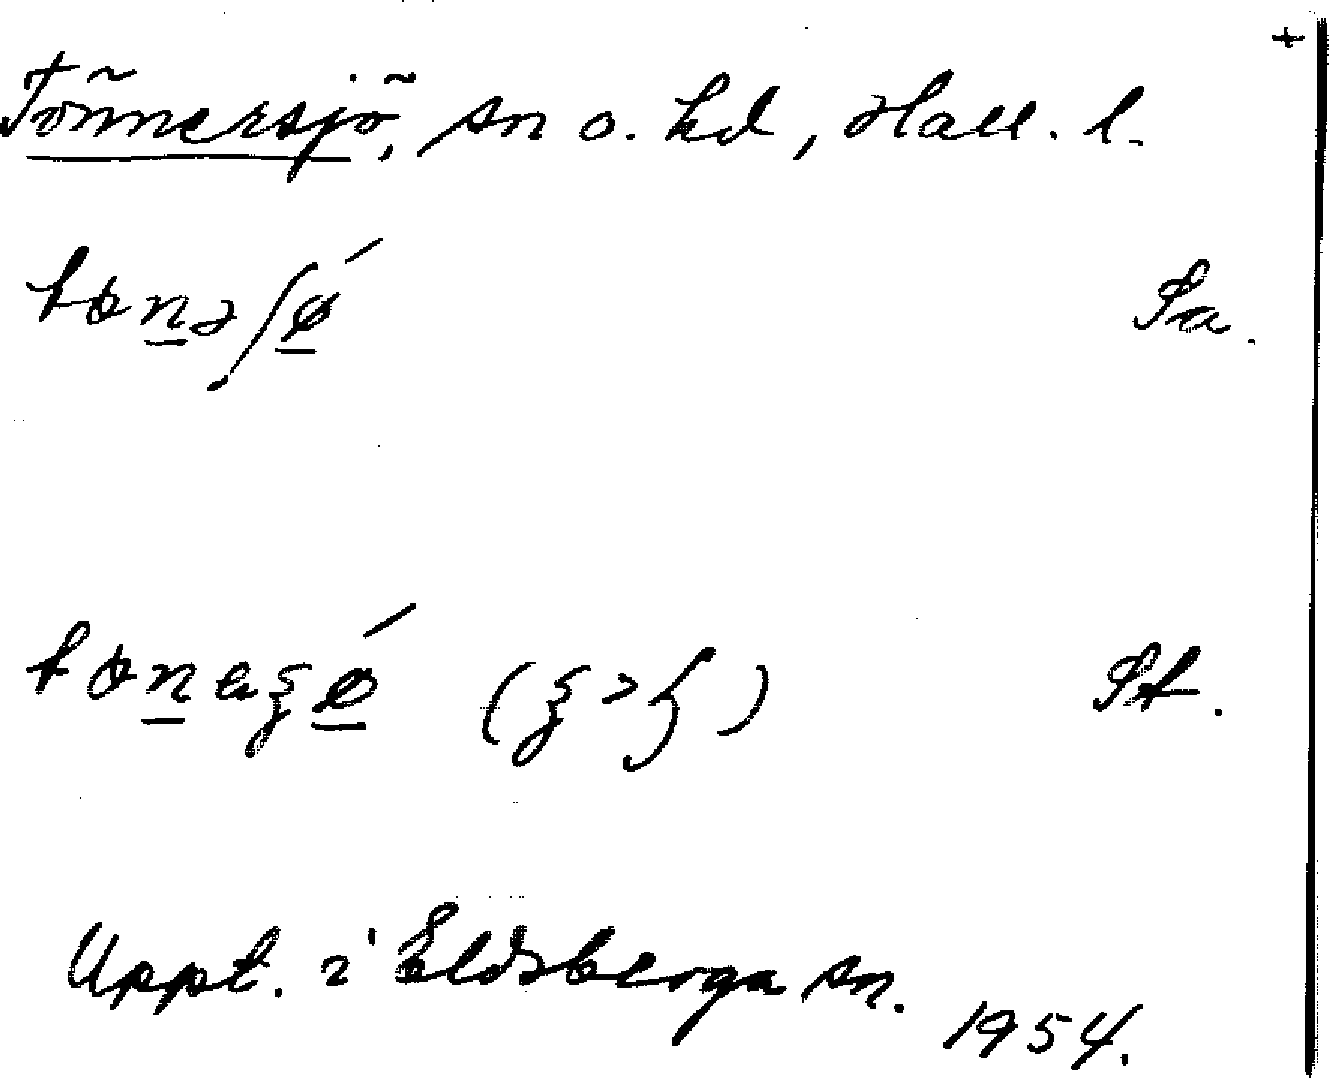 +
Tönnersjö, sn o. hd, Hall. l.
tɵn̲əʃǿ̲ Sa.
St.
Uppt. i Eldsberga sn. 1954.